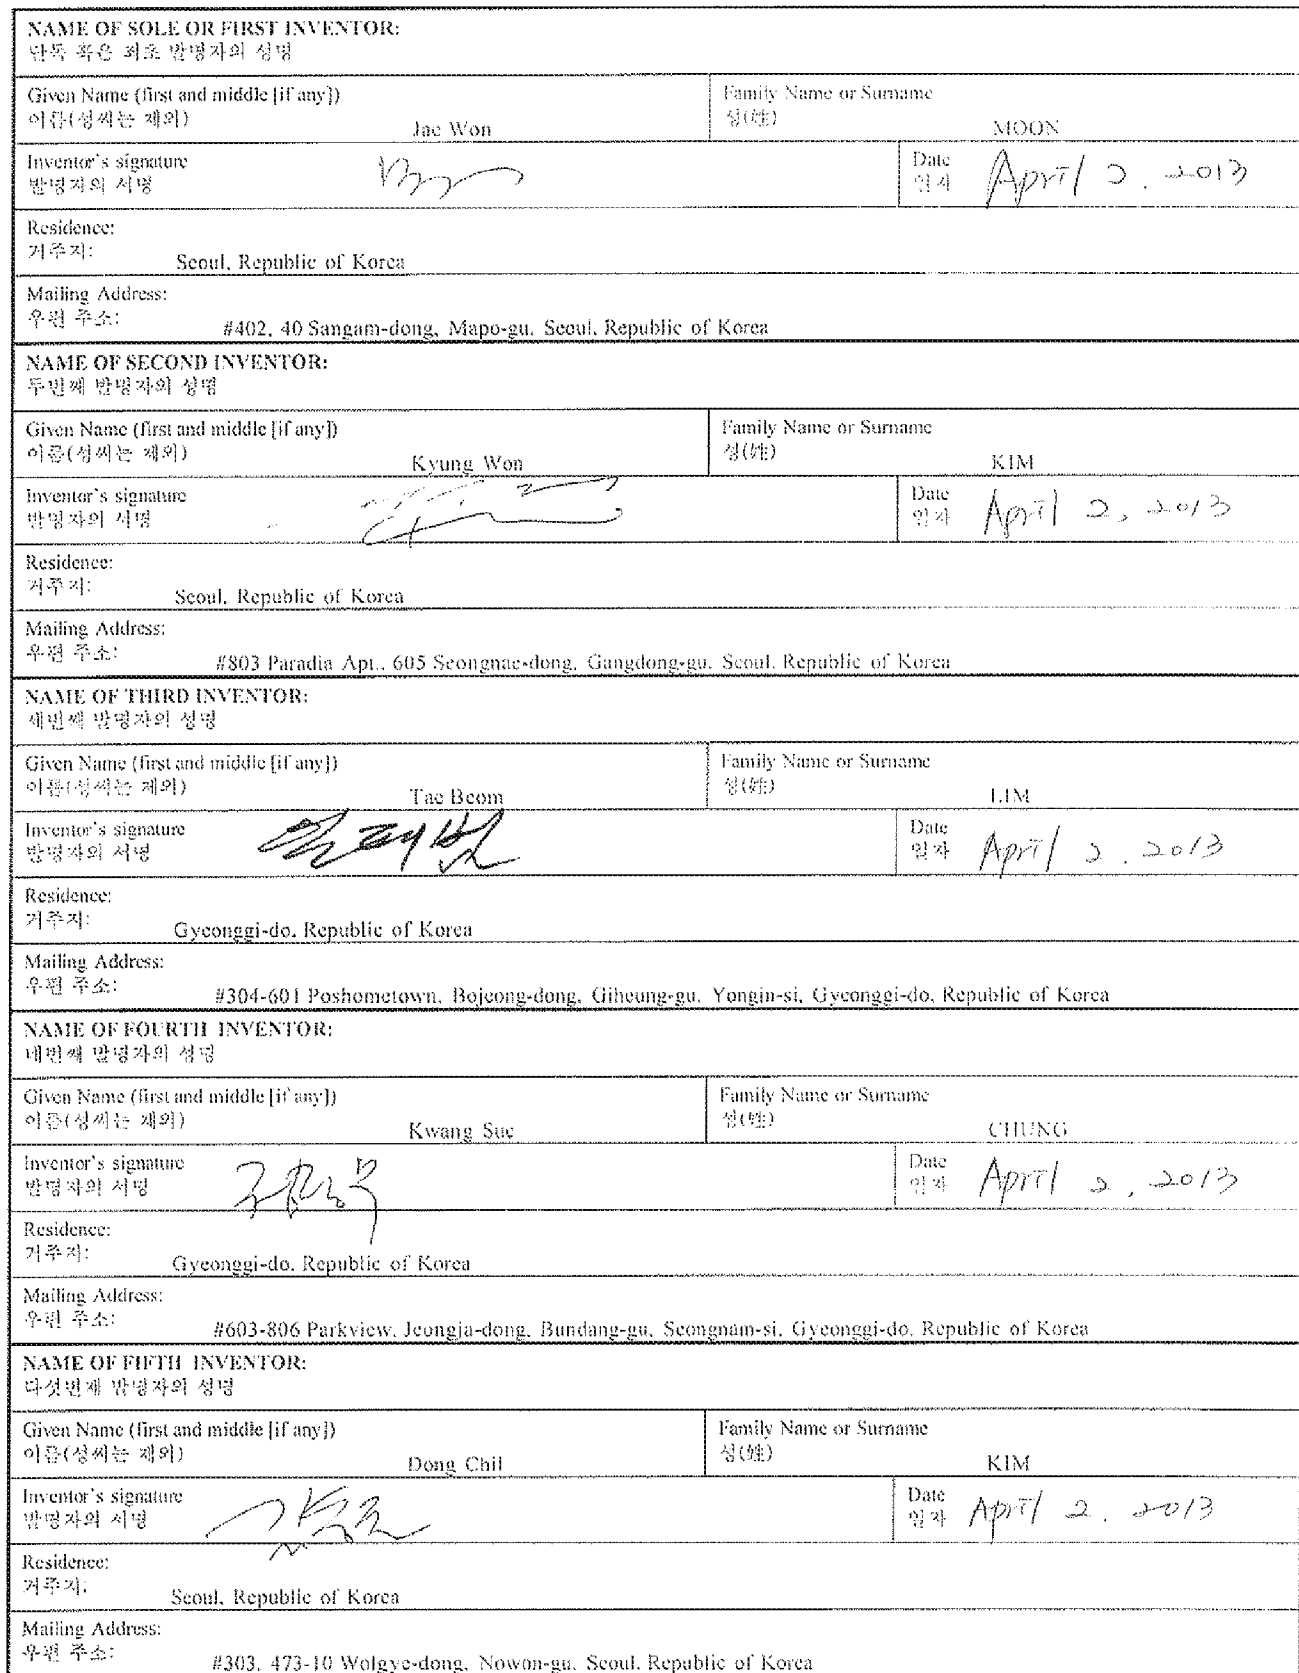 NAME OF SOLE OR FIRST INVENTOR:
단독 혹은 최초 발명자의 성명
Given Name (first and middle [if any]) Family Name or Surname
이름(성씨는 제외) Jae Won 성(姓) MOON
Inventor's signature Date
발명자의 서명 일자 April 2. 2013
Residence:
거주지: Seoul, Republic of Korea
Mailing Address:
우편 주소: #402, 40 Sangam-dong, Mapo-gu, Seoul, Republic of Korea
NAME OF SECOND INVENTOR:
두번째 발명자의 성명
Given Name (first and middle [if any]) Family Name or Surname
이름(성씨는 제외) Kyung Won 성(姓) KIM
Inventor's signature Date
발명자의 서명 일자 April 2, 2013
Residence:
거주지: Seoul, Republic of Korea
Mailing Address:
우편 주소: #803 Paradia Apt., 605 Seongnae-dong, Gangdong-gu, Seoul, Republic of Korea
NAME OF THIRD INVENTOR:
세번째 발명자의 성명
Given Name (first and middle [if any]) Family Name or Surname
이름(성씨는 제외) Tae Beom 성(姓) LIM
Inventor's signature 임태범 Date
발명자의 서명 일자 April 2. 2013
Residence:
거주지: Gyeonggi-do, Republic of Korea
Mailing Address:
우편 주소: #304-601 Poshometown, Bojeong-dong, Giheung-gu, Yongin-si, Gyeonggi-do, Republic of Korea
NAME OF FOURTH INVENTOR:
네번째 발명자의 성명
Given Name (first and middle [if any]) Family Name or Surname
이름(성씨는 제외) Kwang Sue 성(姓) CHUNG
Inventor's signature Date
발명자의 서명 일자 April 2, 2013
Residence:
거주지: Gyeonggi-do, Republic of Korea
Mailing Address:
우편 주소: #603-806 Parkview, Jeongja-dong, Bundang-gu, Seongnam-si, Gyeonggi-do, Republic of Korea
NAME OF FIFTH INVENTOR:
다섯번째 발명자의 성명
Given Name (first and middle [if any]) Family Name or Surname
이름(성씨는 제외) Dong Chil 성(姓) KIM
Inventor's signature Date
발명자의 서명 일자 April 2. 2013
Residence:
거주지: Seoul, Republic of Korea
Mailing Address:
우편 주소: #303, 473-10 Wolgye-dong, Nowon-gu, Seoul, Republic of Korea